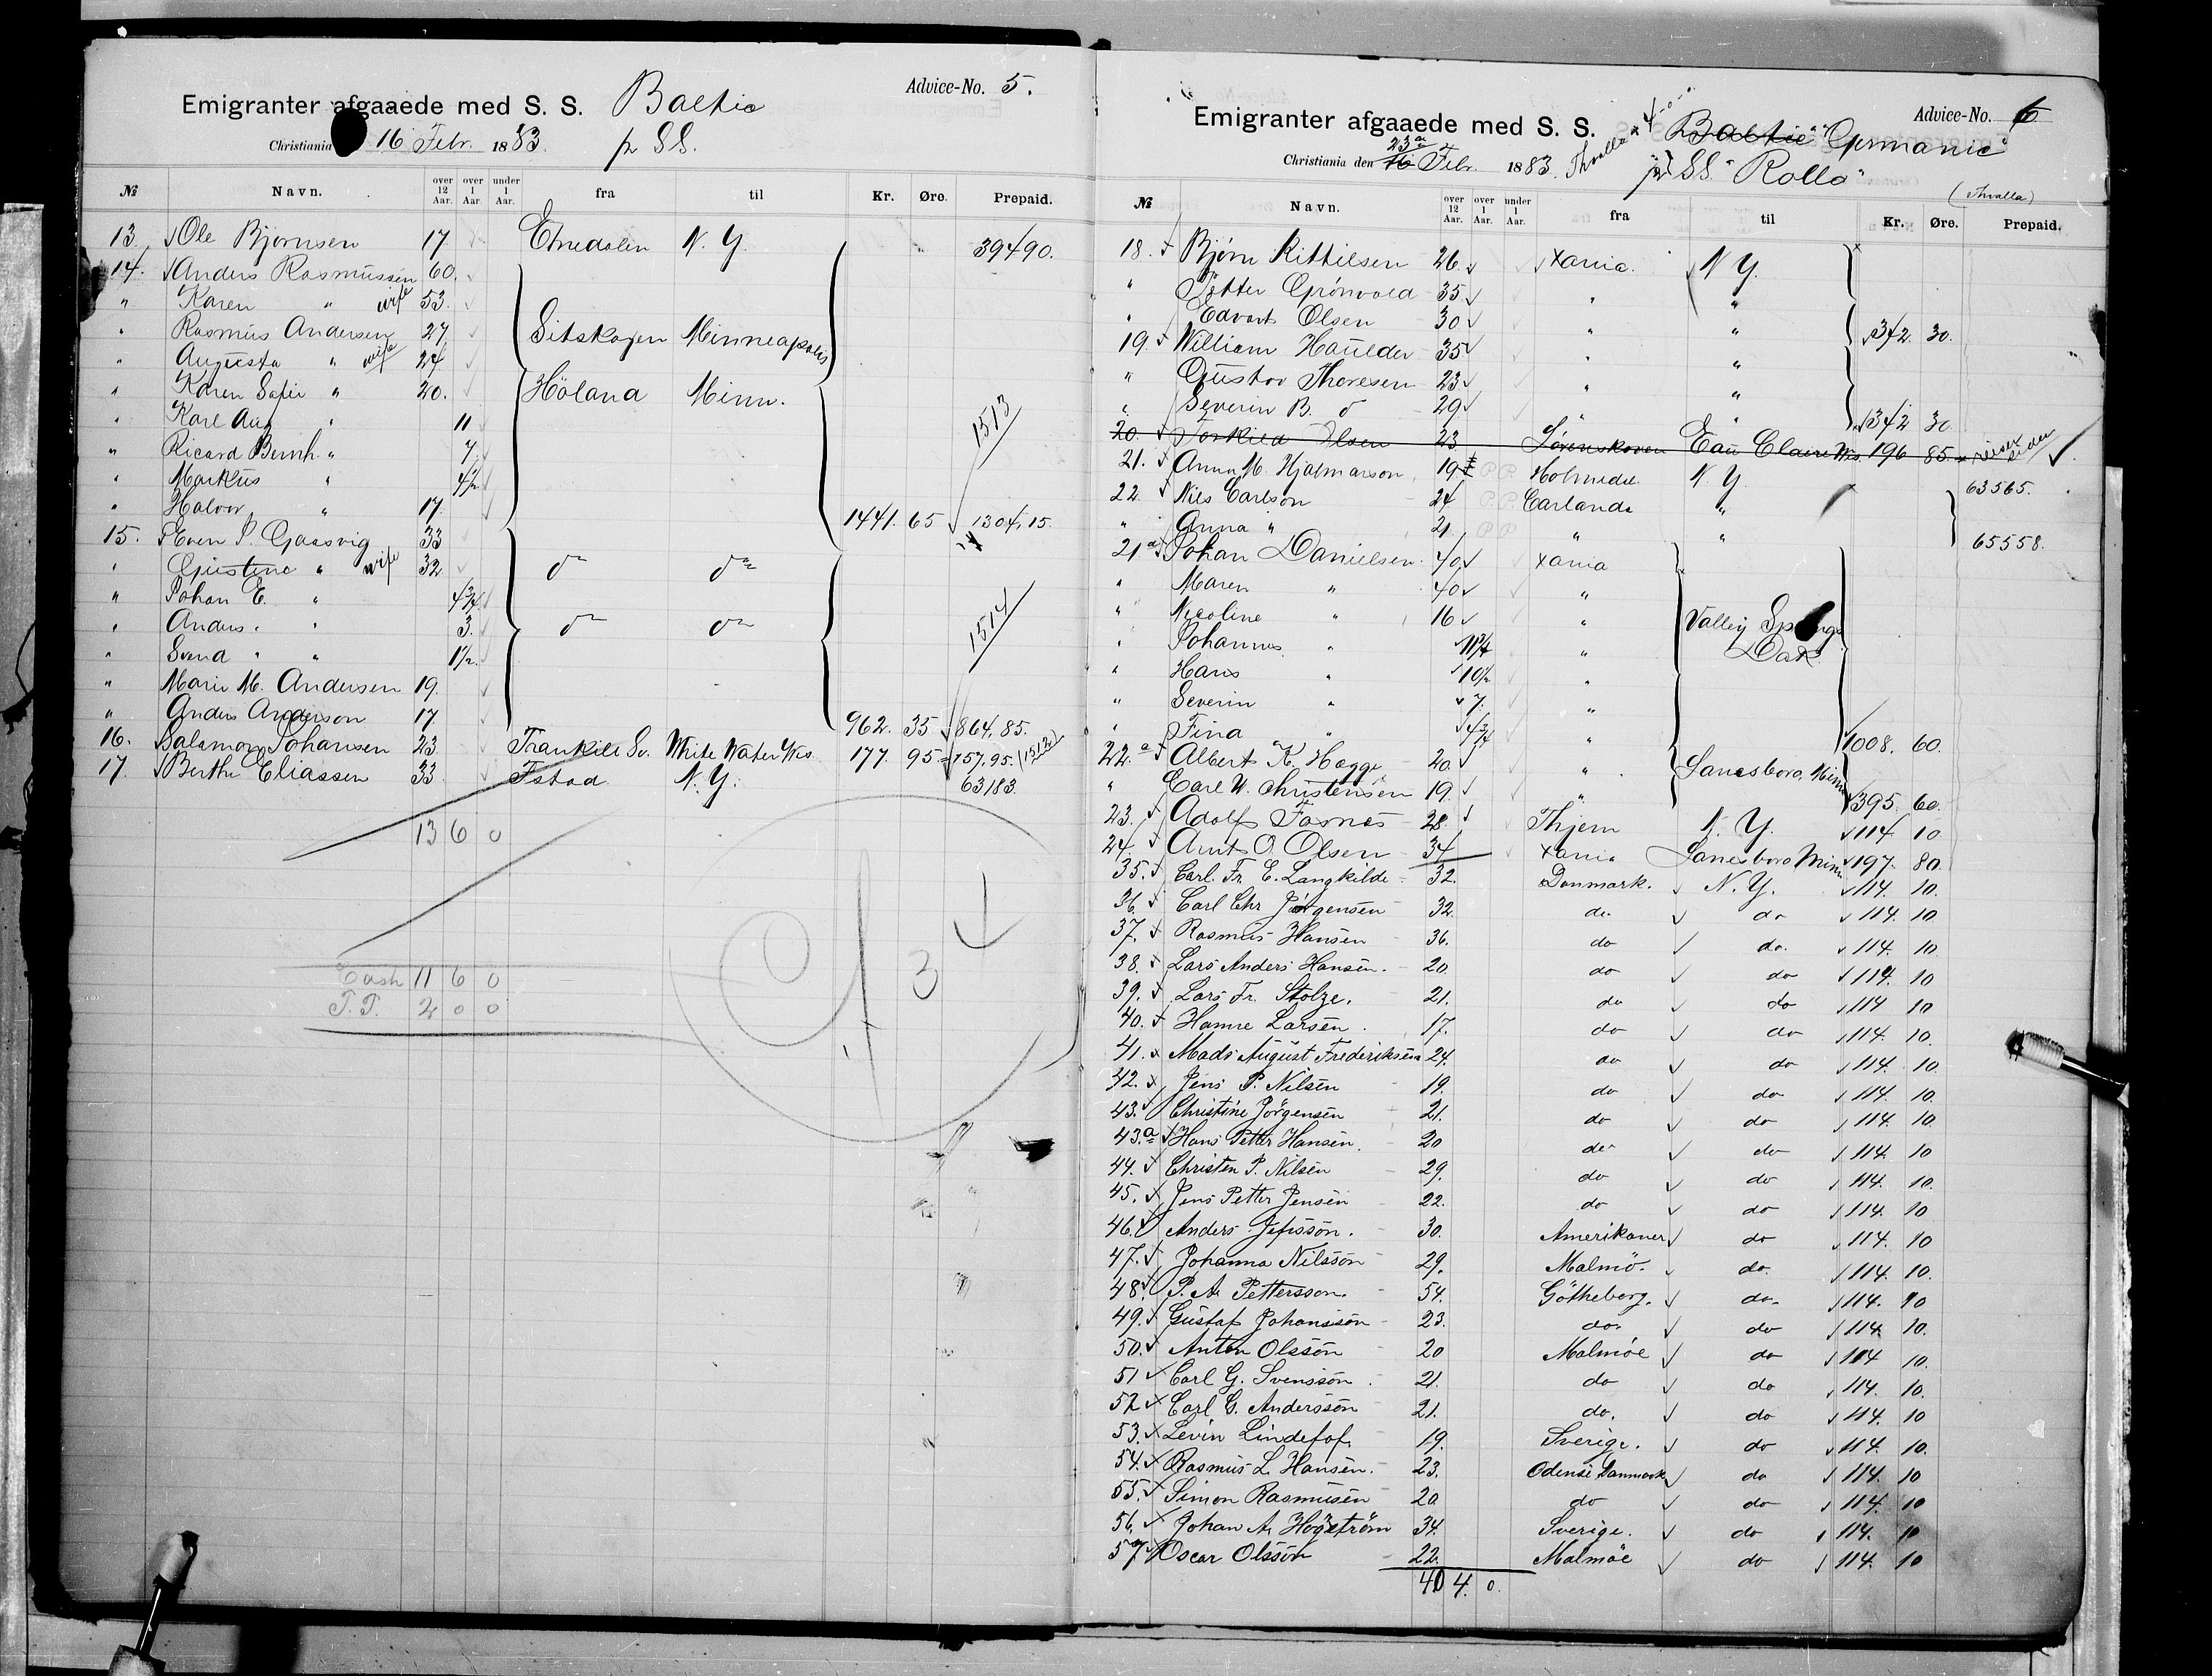 Advice-No. 5.
Emigranter afgaaede med S. S. Baltic
Christiania 16 Febr. 1883. pr SS.
№ Navn. over 12 Aar. over 1 Aar. under 1 Aar. fra til Kr. Øre. Prepaid.
13 Ole Bjørnsen 17. Etnedalen N. Y. 39490.
14. Anders Rasmussen 60.
" Karen " wife 53.
" Rasmus Andersen 27
" Augusta " wife 24 Sitskogen Minneapolis
" Karen Sofie " 20. Höland Minn.
" Karl Aug " 11
" Ricard Bernh. " 7. 1513
" Markus " 4½
" Halvor " 17. 1441. 65 1304,15.
15. Even P. Gaasvig 33
" Gustine " wife 32 do do
" Johan E. " 4¾
" Anders " 3. do do 1514
" Svend " " 1½
" Marie M. Andersen 19.
" Anders Anderson 17. 962. 35 864,85.
16. Salamon Johansen 23 Trankill Sv. White Water Wis 177. 95 157,95. (1512)
17. Berthe Eliassen 33. Fstad N. Y. 63183.
13 6 0
Cash 11 6 0
P. P. 2 0 0
Advice-No. 6
Emigranter afgaaede med S. S. Baltic "Germanic"
Christiania den 16 23de Febr. 1883. Thvalla pr SS. "Rollo"
(Thvalla)
№ Navn. over 12 Aar. over 1 Aar. under 1 Aar. fra til Kr. Øre. Prepaid.
18. Bjørn Kittilsen 26 Xania. N Y.
" Petter Grönvold 35 " "
" Edvart Olsen 30 " " 342. 30.
19. William Haulder 35 " "
" Gustav Thoresen 23 " "
" Severin B. do 29 " " 342 30
20. Torkild Olsen 23 Sörenskoven Eau Claire Wis. 196 85.
21. Anna M. Hjalmarson 19 P P. Holmedal N Y 63565.
22. Nils Carlson 24 P. P. Carlanda "
" Anna " 21 P P " " 65558.
21a Johan Danielsen 40 Xania
" Maren " 40 "
" Nicoline " 16 " Valley Springs
" Johannes " 11¾ " Dak
" Hans " 10½ "
" Severin " 7. "
" Fina " 4¾ " 1008. 60.
22a Albert K. Hagge 20. " Lanesboro, Minn
" Carl W. Christensen 19. " 395. 60.
23. Adolf Fasnes 28. Thjem N. Y. 114 10
24. Arnt O Olsen 34 Xania Lanesboro Minn 197. 80.
35. Carl. Fr. E. Langkilde 32. Danmark. N. Y. 114. 10.
36. Carl Chr Jörgensen 32. do do 114. 10.
37. Rasmus Hansen 36. do do. 114. 10
38. Lars Anders Hansen. 20. do do 114. 10
39. Lars Fr. Stolze. 21. do do 114 10
40. Hanne Larsen. 17. do do 114. 10.
41. Mads August Frederiksen 24. do do 114. 10
42. Jens P. Nilsen 19. do do 114. 10.
43. Christine Jörgensen 21. do do 114. 10.
43.a Hans Petter Hansen. 20 do do 114. 10
44. Christen P. Nilsen 29. do do 114. 10.
45. Jens Petter Jensen 22. do do 114. 10
46. Anders Jepsson. 30. Amerikaner do 114. 10
47. Johanna Nilsson 29. Malmö. do. 114. 10.
48. P. A. Pettersson. 54. Götheborg. do. 114. 10
49. Gustaf Johansson 23. do. do 114. 10.
50. Anton Olsson 20 Malmöe do 114 10.
51 Carl G. Svensson. 21. do do 114. 10.
52 Carl G. Andersson 21. do. do 114. 10
53. Levin Lindefof. 19. Sverige. do 114. 10.
54. Rasmus L. Hansen. 23. Odense Danmark do 114. 10
55. Simon Rasmusen 20 do do 114. 10
56. Johan A. Högström 34. Sverige. do 114. 10
57 Oscar Olsson 22. Malmöe do 114. 10
40 4. 0.